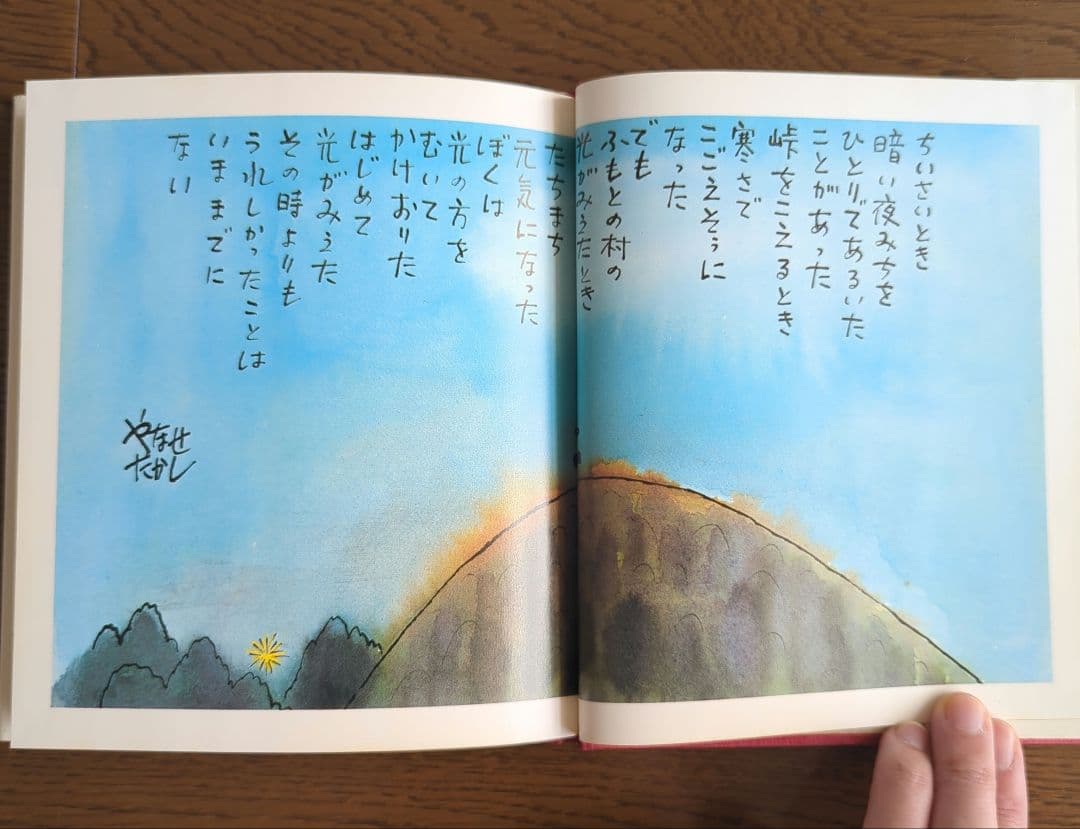 ちいさいとき
暗い夜みちを
ひとりであるいた
ことがあった
峠をこえるとき
寒さで
こごえそうに
なった
でも
ふもとの村の
光がみえたとき
たちまち
元気になった
ぼくは
光の方を
むいて
かけおりた
はじめて
光がみえた
その時よりも
うれしかったことは
いままでに
ない
やなせ
たかし